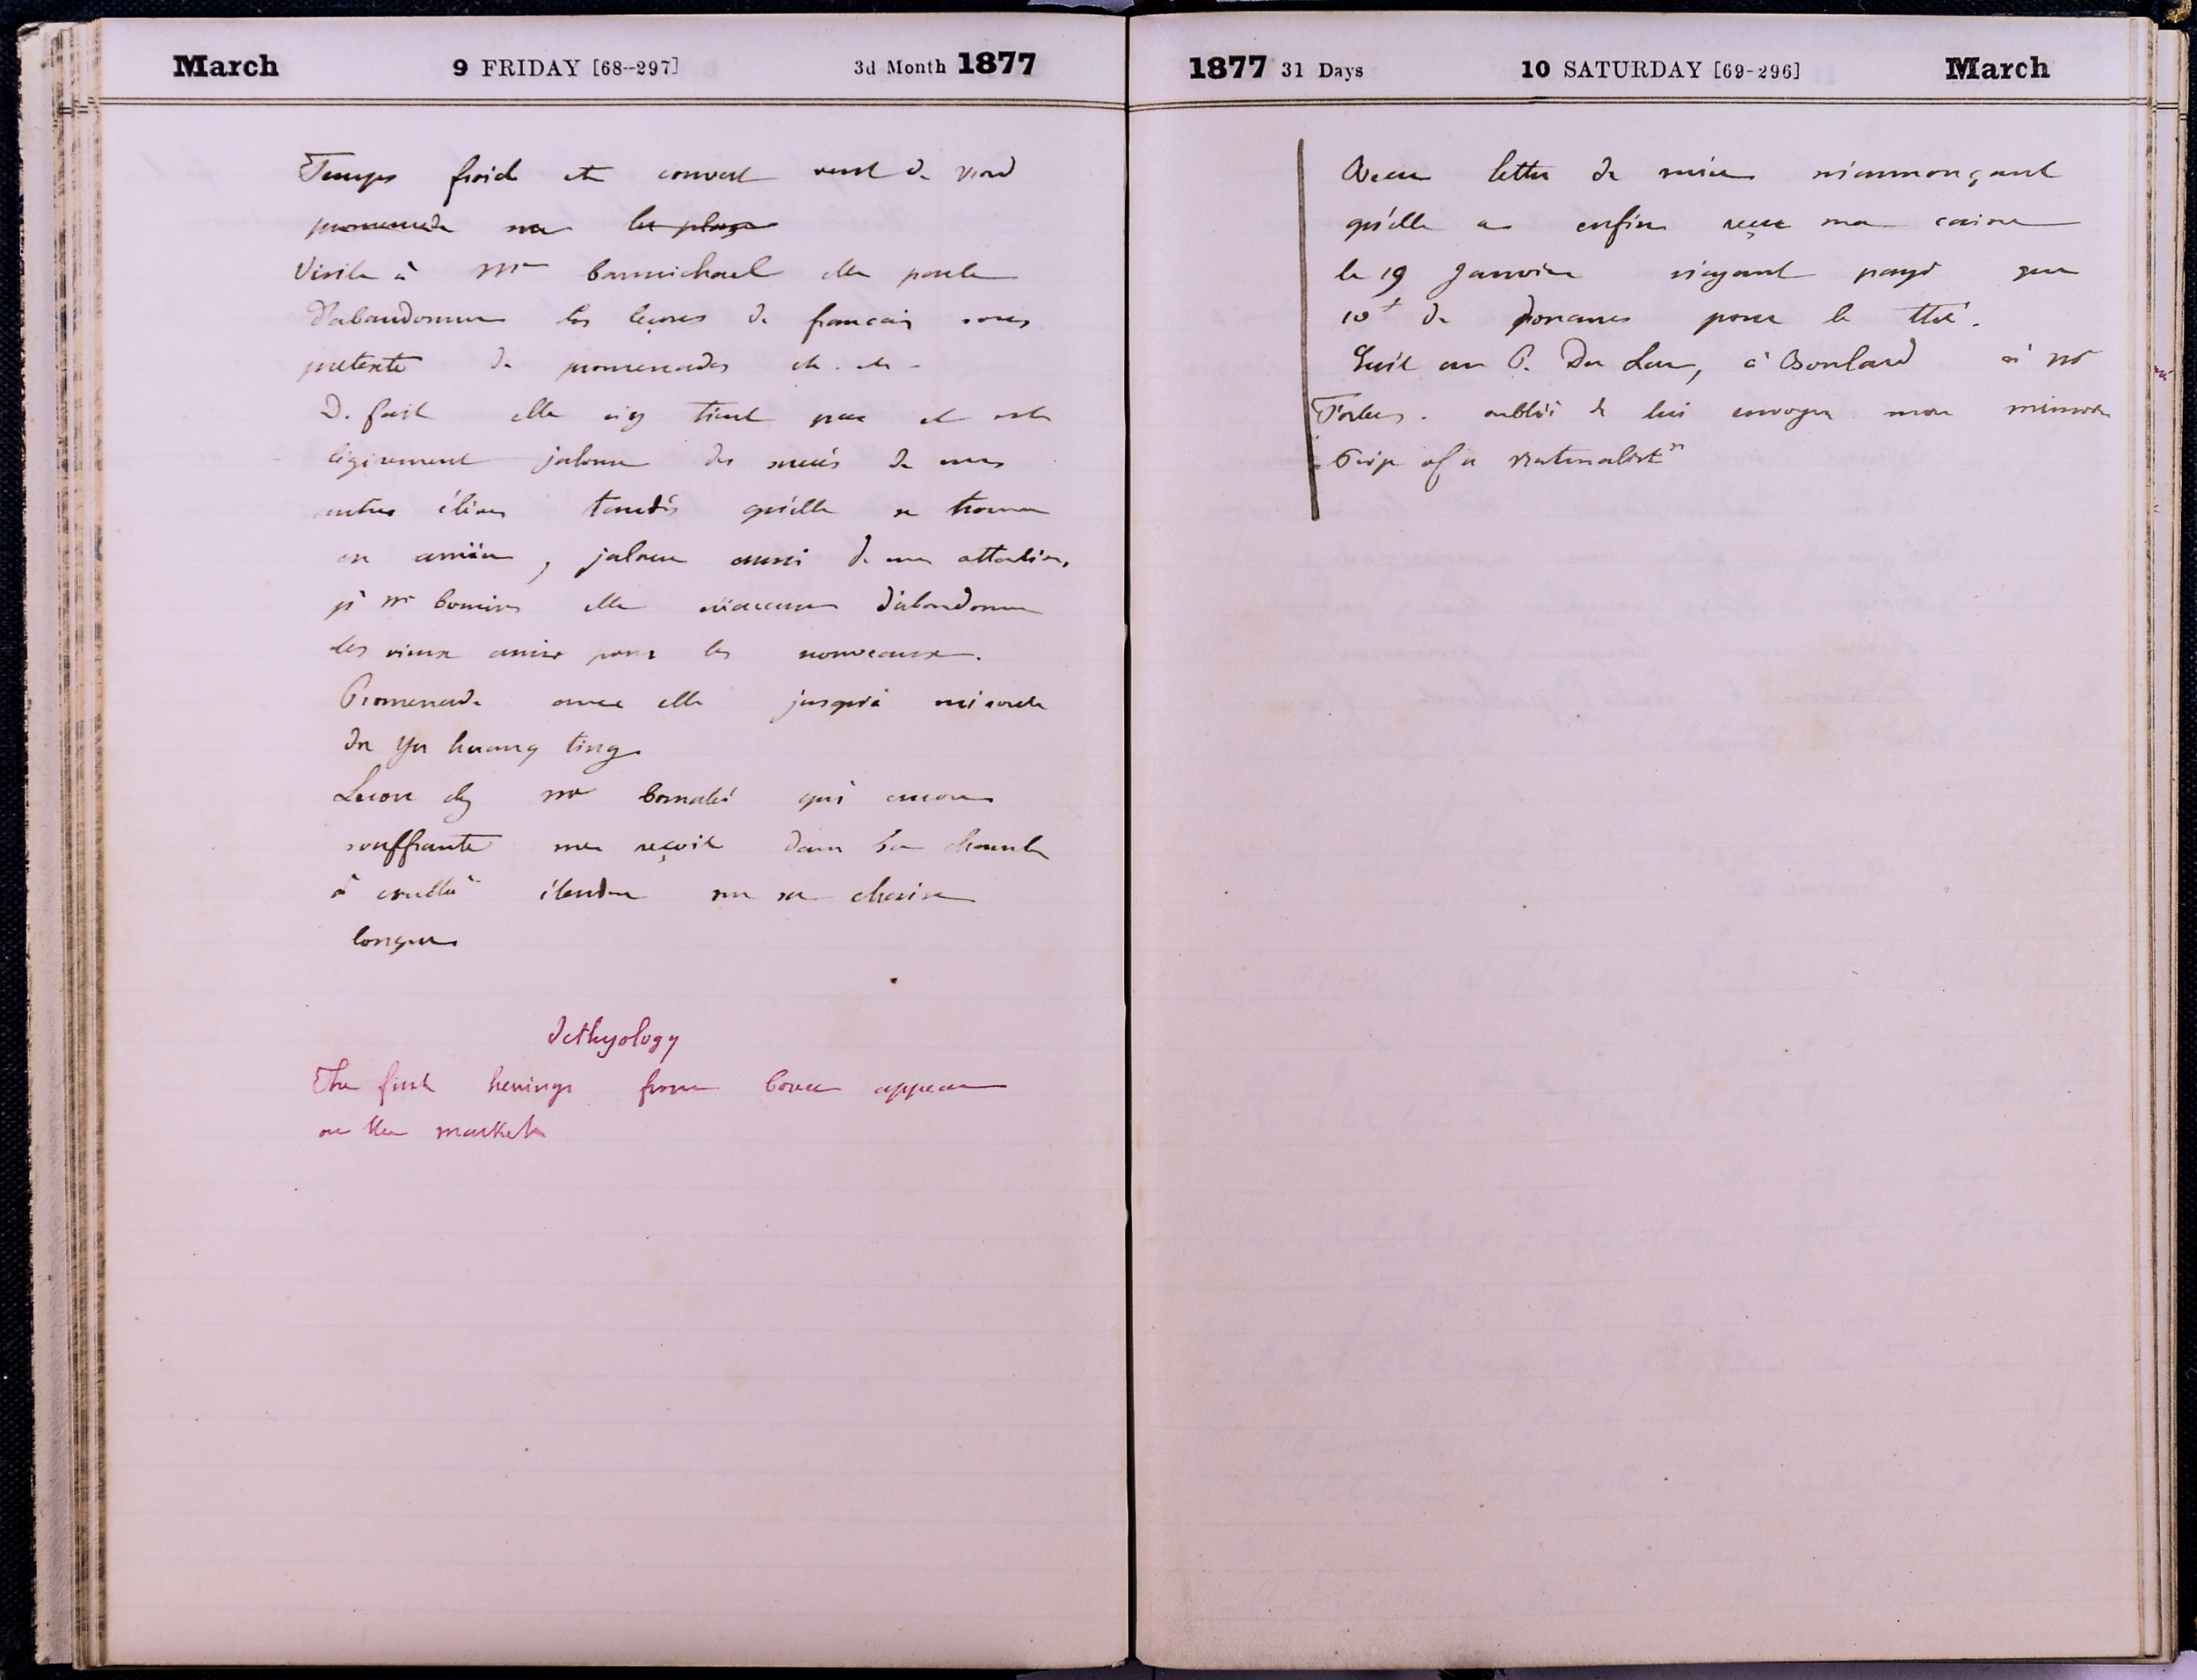 March 9 FRIDAY [68--297] 3d Month 1877
Temps froid et couvert vent de nord
promenade sur la plage
Visite à Me Carmichael elle parle
d'abandonner les leçons de francais sous
pretexte de promenades etc. etc.
De fait elle n'y tient pas et est
légèrement jalouse des succès de mes
autres élèves tandis qu'elle se trouve
en arrière, jalouse aussi de mes attentions
pr Me elle m'accuse d'abandonner
les vieux amis pour les nouveaux.
Promenade avec elle jusqu'à mi route
du Yu huang ting
Lecon chez Me Cornabé qui encore
souffrante me reçoit dans sa chambre
à coucher étendue sur sa chaise
longue
Icthyology
The first herrings from Corea appear
on the market
1877 31 Days 10 SATURDAY [69-296] March
Recu lettre de mère m'annonçant
qu'elle a enfin reçu ma caisse
le 19 Janvier n'ayant payé que
10f de douanes pour le thé.
Ecrit au P. Du Lau, à Boulard à Mr
Forbes. oublié de lui envoyer mon memoire
"Trip of a Naturalist"